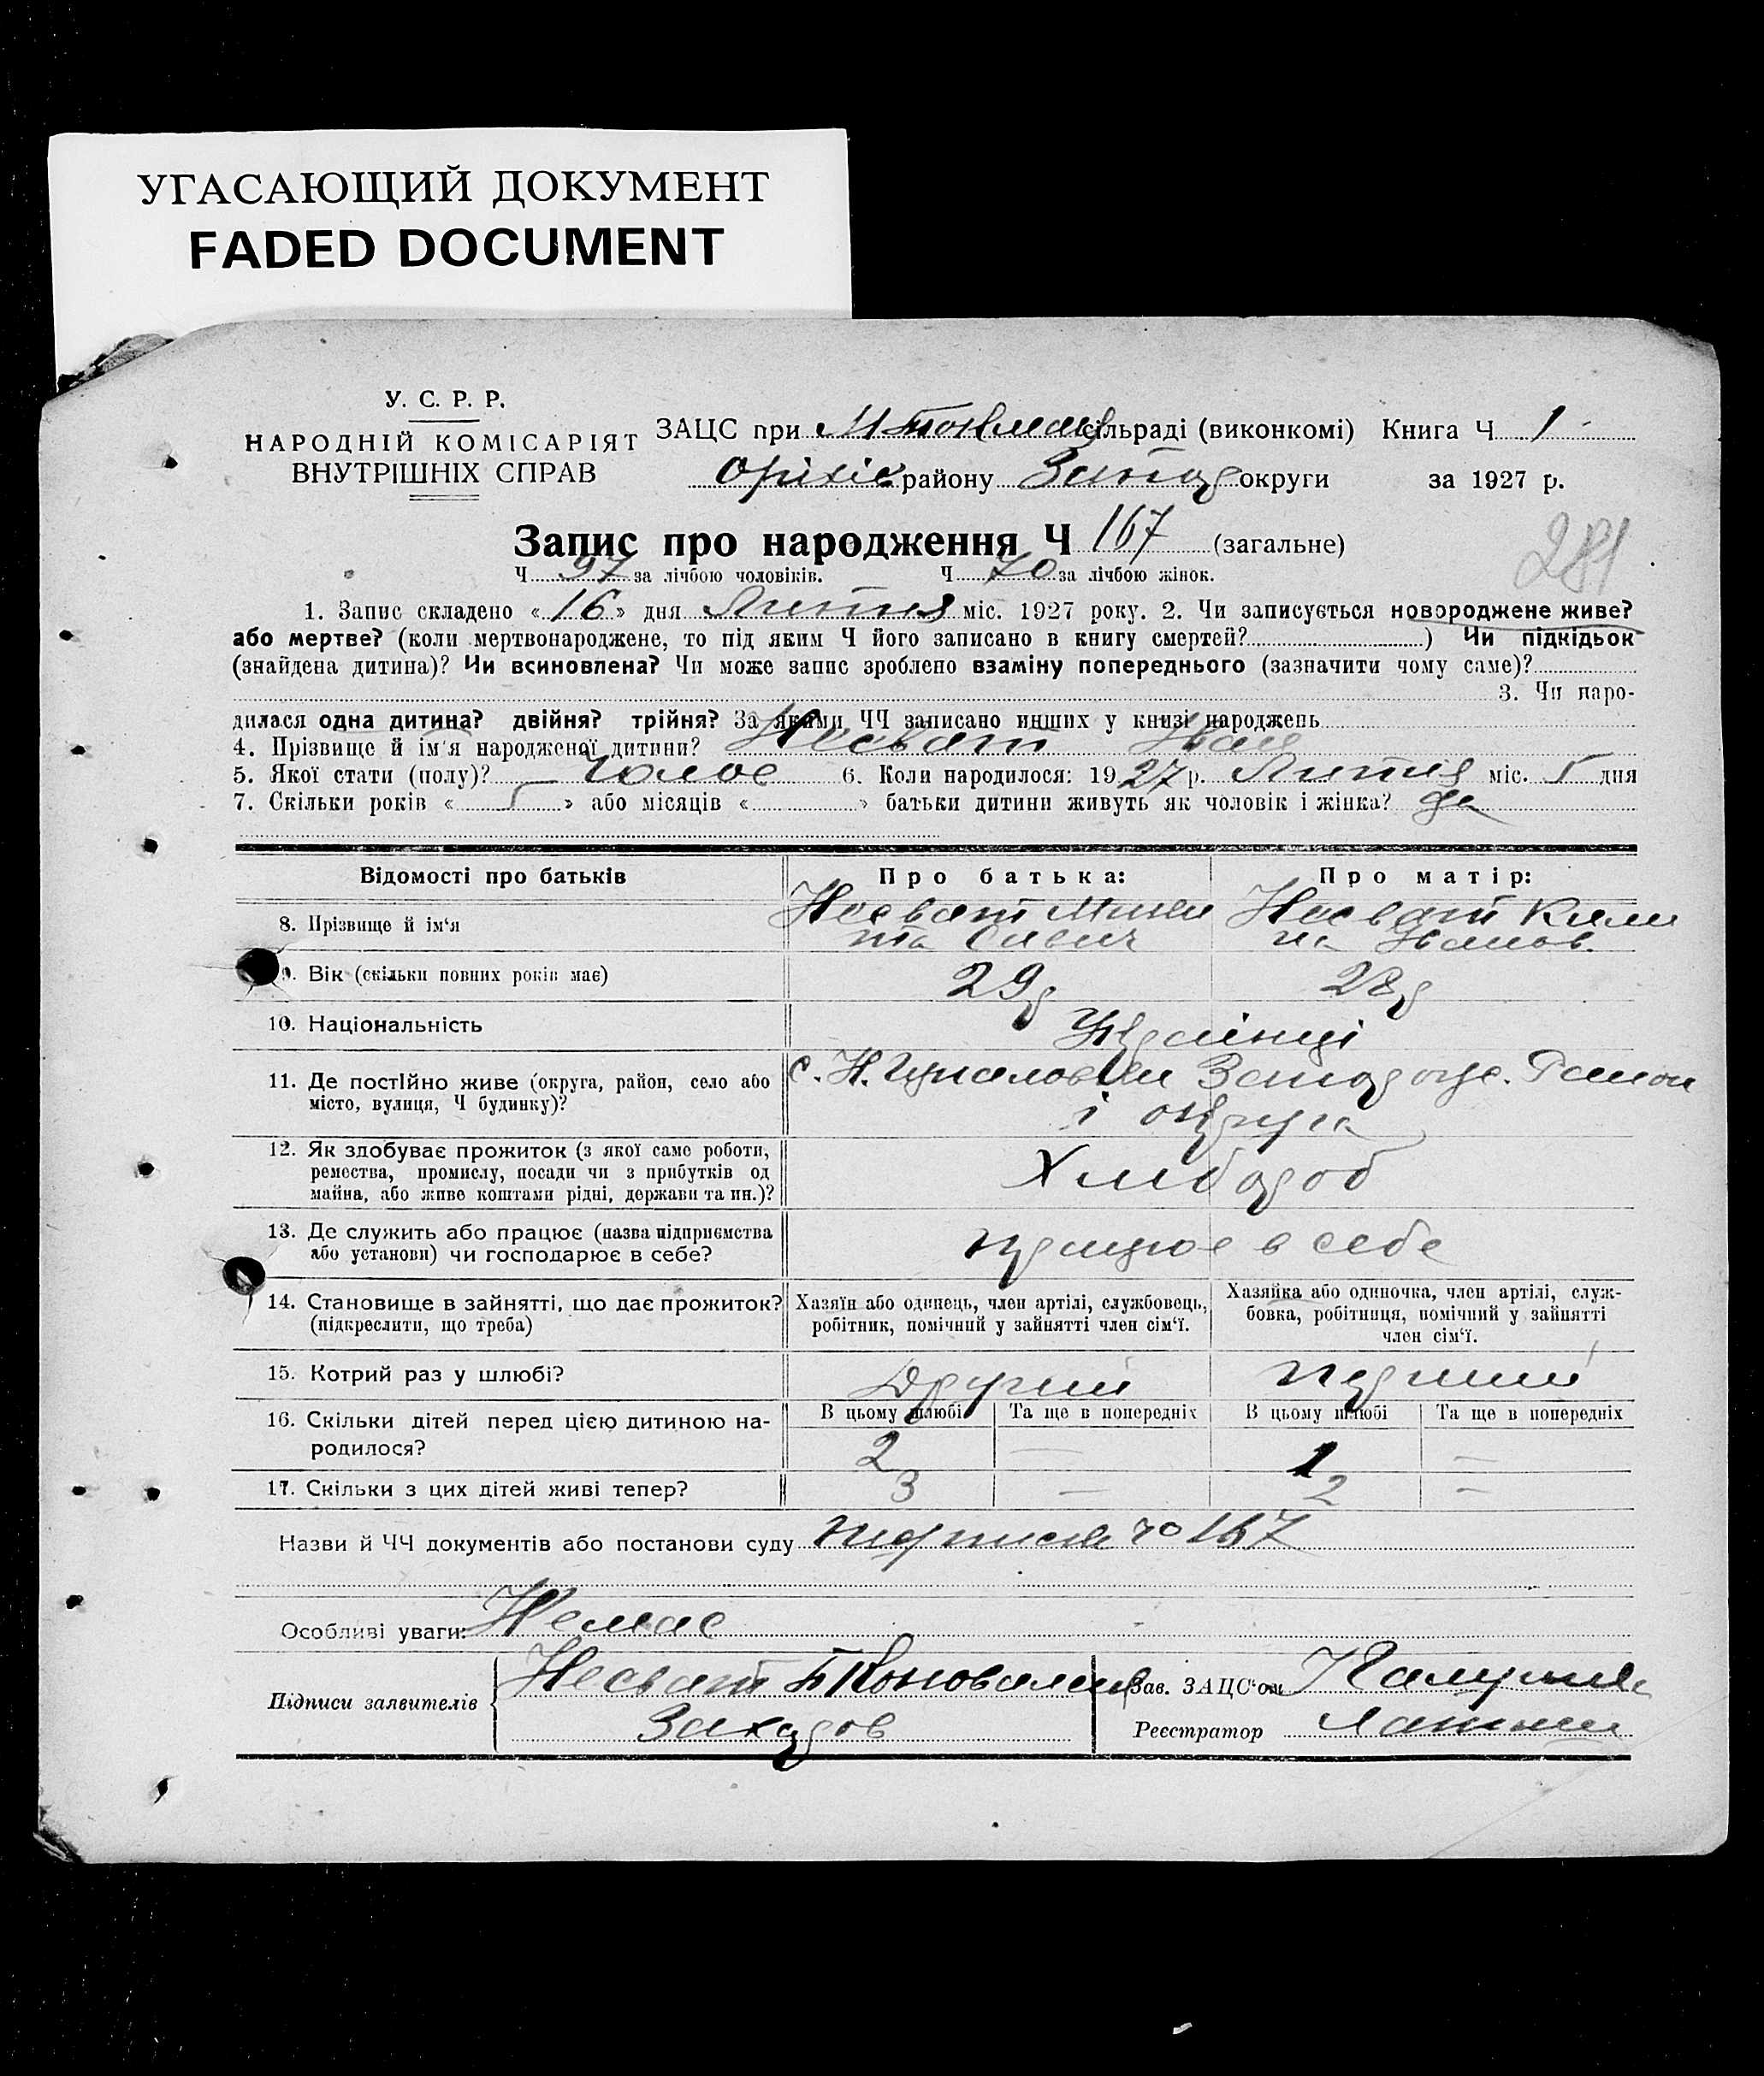 УГАСАЮЩИЙ ДОКУМЕНТ
FADED DOCUMENT
У. С. Р. Р.
НАРОДНІЙ КОМІСАРІЯТ
ВНУТРІШНІХ СПРАВ
ЗАЦС при сільраді (виконкомі) Книга Ч 1
Оріхів району Запор округи за 1927 р.
Запис про народження Ч 167 (загальне)
281
Ч 97 за лічбою чоловіків. Ч 70 за лічбою жінок.
1. Запис складено «16» дня Лютня міс. 1927 року. 2. Чи записується новороджене живе?
або мертве? (коли мертвонароджене, то під яким Ч його записано в книгу смертей? ) Чи підкідьок
(знайдена дитина)? Чи всиновлена? Чи може запис зроблено взаміну попереднього (зазначити чому саме)?
3. Чи наро-
дилася одна дитина? двійня? трійня? За якими ЧЧ записано инших у книзі народжень
4. Прізвище й ім'я народженої дитини? Несват Іван
5. Якої стати (полу)? Чолов 6. Коли народилося: 1927 р. Лютня міс. 5 дня
7. Скільки років « 5 » або місяців « » батьки дитини живуть як чоловік і жінка? да
Відомості про батьків Про батька: Про матір:
8. Прізвище й ім'я Несват Мики Несват Кили
та Савич на Іванов.
9. Вік (скільки повних років має) 29 р 28 р
10. Національність Українці
11. Де постійно живе (округа, район, село або с. Н. Запорожс. Район
місто, вулиця, Ч будинку)? і округа
12. Як здобуває прожиток (з якої саме роботи,
ремества, промислу, посади чи з прибутків од Хлібороб
майна, або живе коштами рідні, держави та ин.)?
13. Де служить або працює (назва підприємства працює в себе
або установи) чи господарює в себе?
14. Становище в зайнятті, що дає прожиток? Хазяїн або одинець, член артілі, службовець, Хазяйка або одиночка, член артілі, служ-
(підкреслити, що треба) робітник, помічний у зайнятті член сім'ї. бовка, робітниця, помічний у зайнятті
член сім'ї.
15. Котрий раз у шлюбі? Другий перший
16. Скільки дітей перед цією дитиною на- В цьому шлюбі Та ще в попередніх В цьому шлюбі Та ще в попередніх
родилося? 2 — 1 —
17. Скільки з цих дітей живі тепер? 3 — 2 —
Назви й ЧЧ документів або постанови суду 167
Особливі уваги: Немає
Підписи заявителів Несват Коновалов Зав. ЗАЦС'ом
Захаров Реєстратор